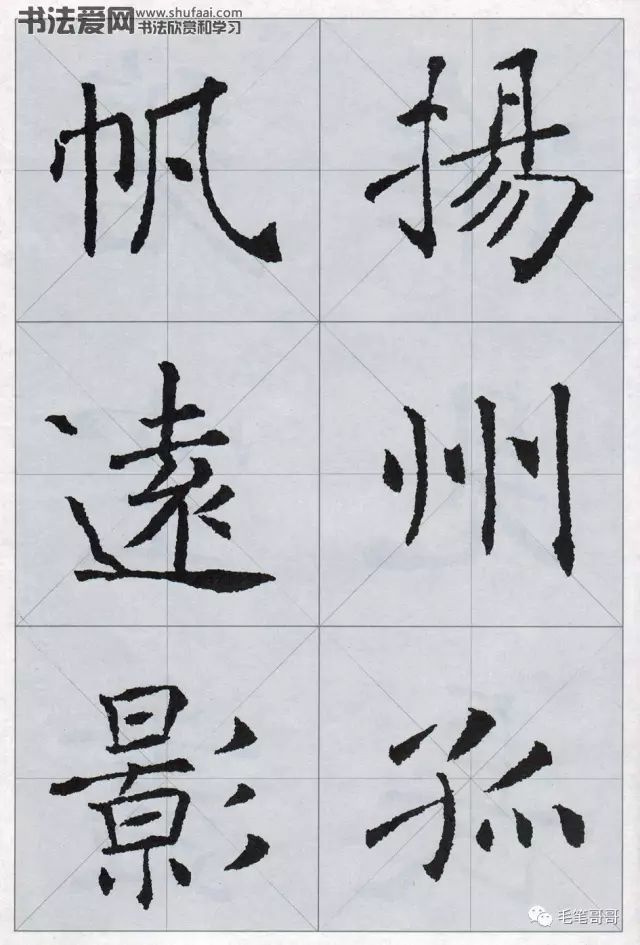 书法爱网 www.shufaai.com
书法欣赏和学习
揚州孤
帆遠影
毛笔哥哥